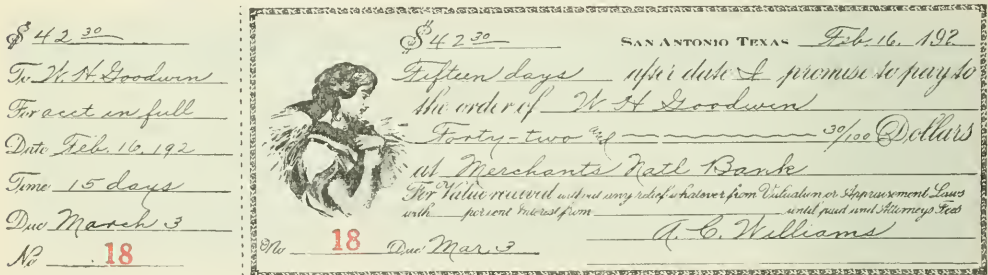 $ 42 30
To W. H. Goodwin
For acct in full
Date Feb. 16, 192
Time 15 days
Due March 3
No 18
$ 42 30 SAN ANTONIO TEXAS Feb. 16, 192
Fifteen days after date I promise to pay to
the order of W H Goodwin
Forty-two and 30/100 Dollars
at Merchants Natl Bank
For Value received without any relief whatever from Valuation or Appraisement Laws
with per cent Interest from until paid and Attorneys Fees
No 18 Due Mar. 3 A. C. Williams